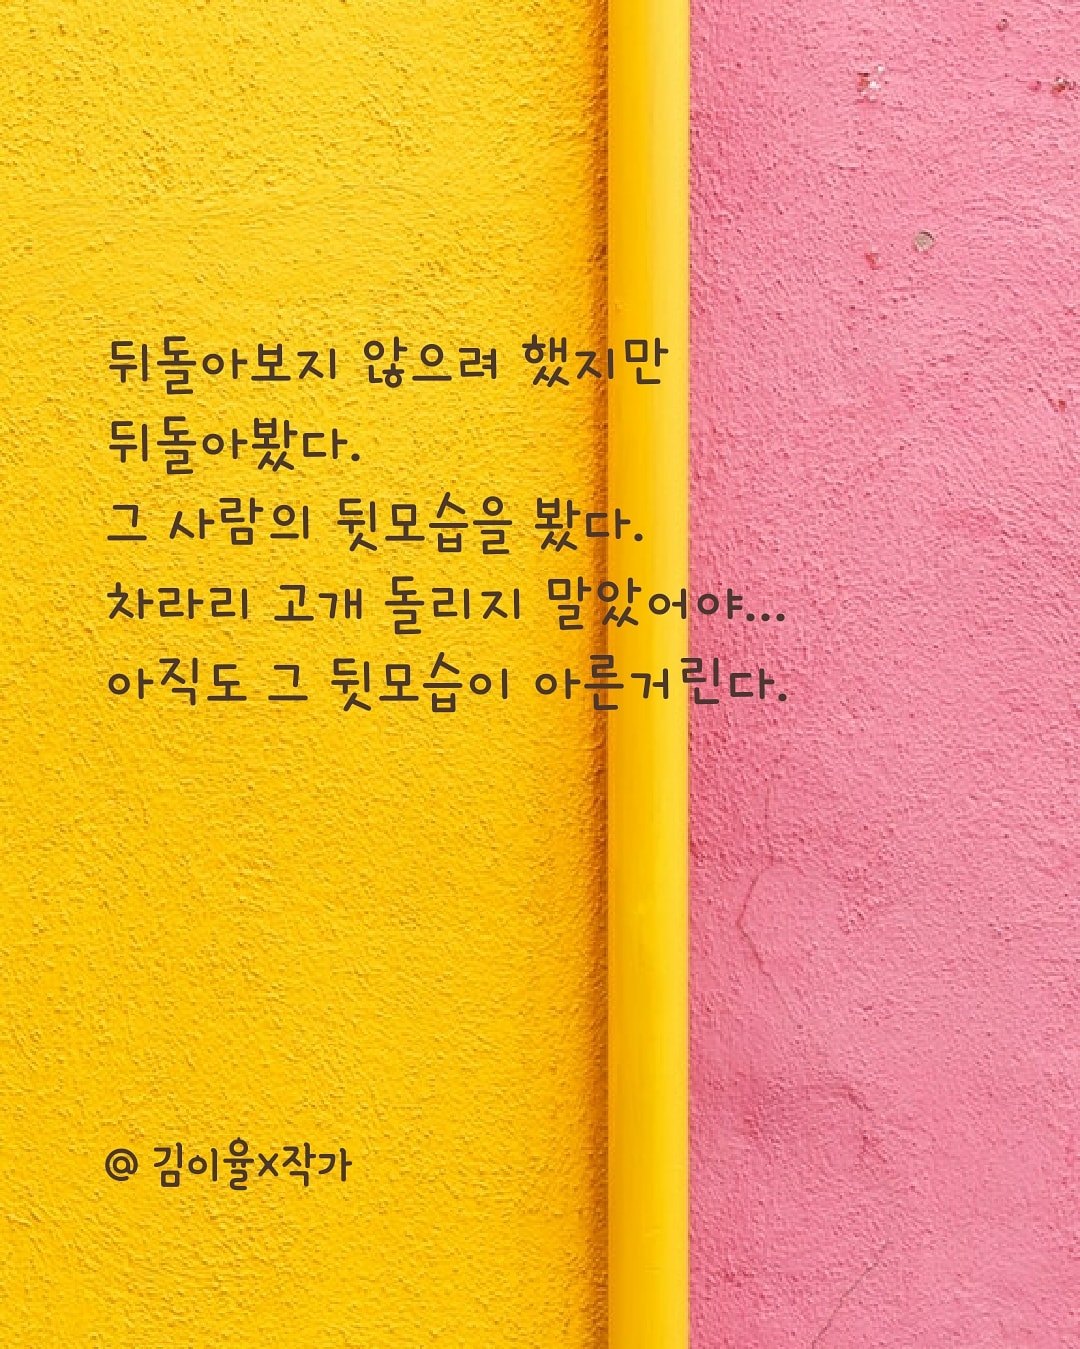 뒤돌아보지 않으려 했지만
뒤돌아봤다.
그 사람의 뒷모습을 봤다.
차라리 고개 돌리지 말았어야...
아직도 그 뒷모습이 아른거린다.
@ 김이율x작가